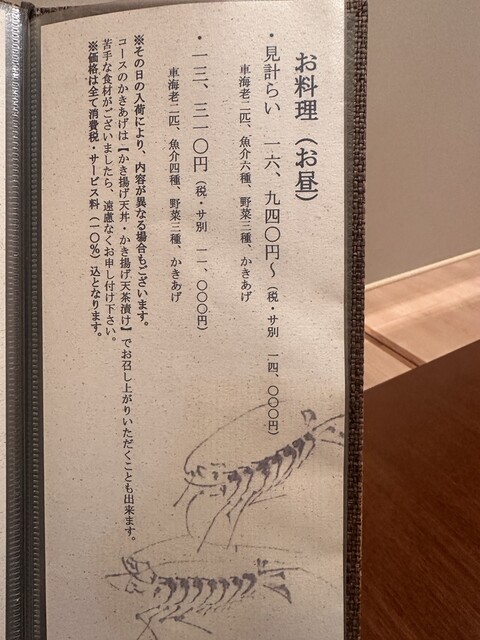 お料理（お昼）
・見計らい　一六、九四〇円〜（税・サ別　一四、〇〇〇円）
車海老二匹、魚介六種、野菜三種、かきあげ
・一三、三一〇円（税・サ別　一一、〇〇〇円）
車海老二匹、魚介四種、野菜三種、かきあげ
※その日の入荷により、内容が異なる場合もございます。
コースのかきあげは【かき揚げ天丼・かき揚げ天茶漬け】でお召し上がりいただくことも出来ます。
苦手な食材がございましたら、遠慮なくお申し付け下さい。
※価格は全て消費税・サービス料（一〇％）込となります。